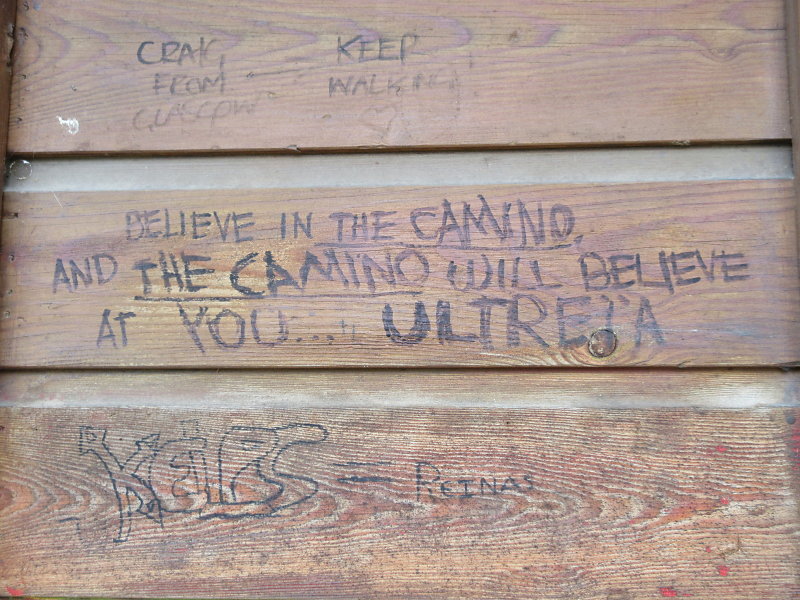 CRAIG,
FROM
GLASGOW
KEEP
WALKING
BELIEVE IN THE CAMINO,
AND THE CAMINO WILL BELIEVE
AT YOU.... ULTREIA
= REINAS